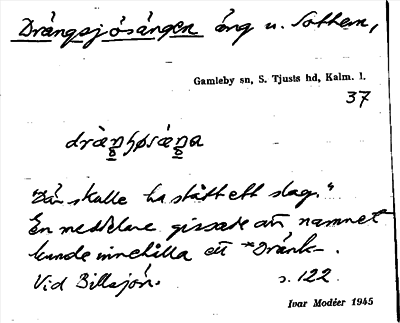 Drängsjösängen äng u. Sothem,
Gamleby sn, S. Tjusts hd, Kalm. l.
37
skulle ha stått ett slag."
En meddelare gissade att namnet
kunde innehålla ett *Dränk-.
Vid Billsjön. s. 122.
Ivar Modéer 1945